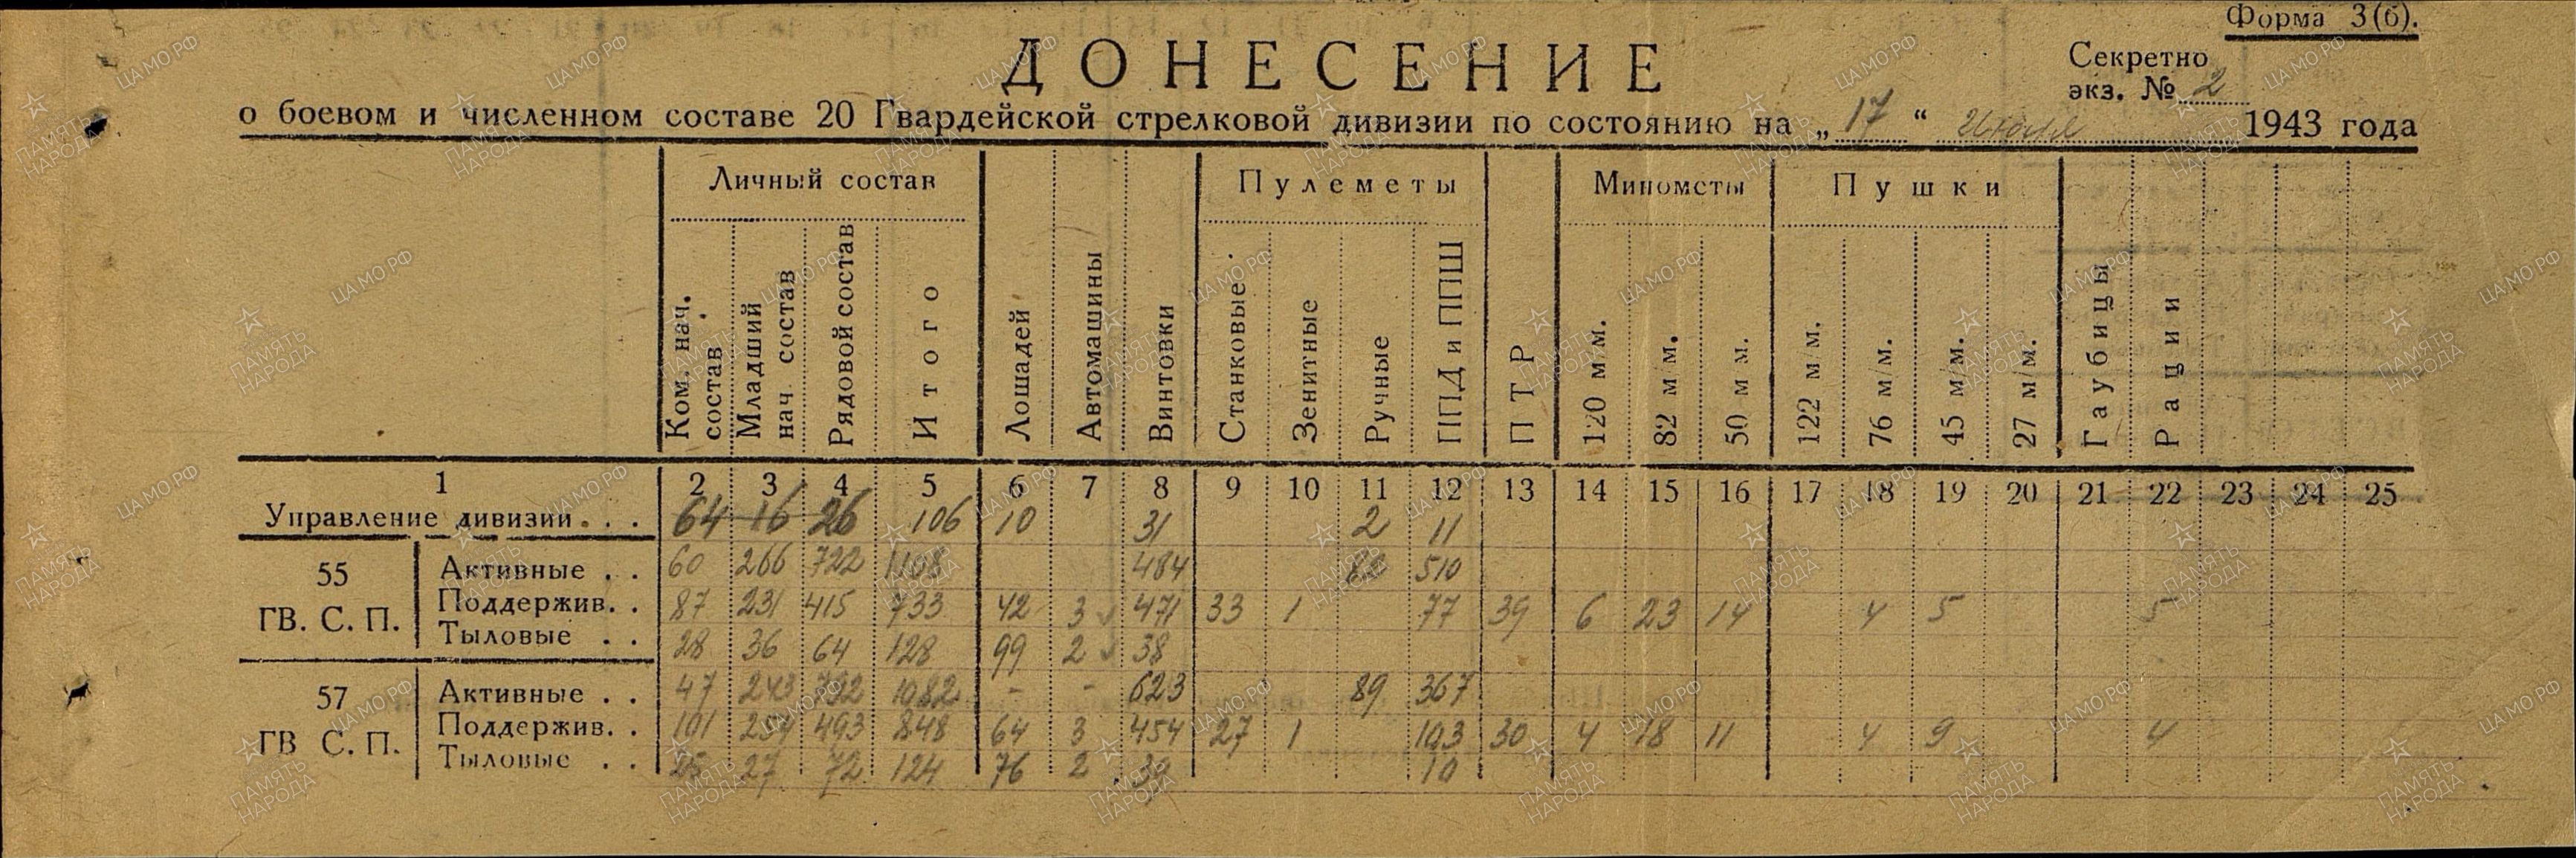 Форма 3(б).
Секретно
экз. № 2
ДОНЕСЕНИЕ
о боевом и численном составе 20 Гвардейской стрелковой дивизии по состоянию на „ 17 “ июля 1943 года
Личный состав Пулеметы Минометы Пушки
Ком. нач. состав
Младший нач состав
Рядовой состав
Итого
Лошадей
Автомашины
Винтовки
Станковые
Зенитные
Ручные
ППД и ППШ
ПТР
120 м/м.
82 м м.
50 м м.
122 м/м.
76 м/м.
45 м/м.
27 м/м.
Гаубицы
Рации
1 2 3 4 5 6 7 8 9 10 11 12 13 14 15 16 17 18 19 20 21 22 23 24 25
Управление дивизии . . . 64 16 26 106 10 31 2 11
55 ГВ. С. П.
Активные . . 60 266 722 1108 484 510
Поддержив. . 87 231 415 733 42 3 471 33 1 77 39 6 23 14 4 5 5
Тыловые . . 28 36 64 128 99 2 38
57 ГВ С. П.
Активные . . 47 243 792 1082 - - 623 89 367
Поддержив. . 101 254 493 848 64 3 454 27 1 103 30 4 18 11 4 9 4
Тыловые . . 25 27 72 124 76 2 10
ПАМЯТЬ НАРОДА
ЦАМО РФ